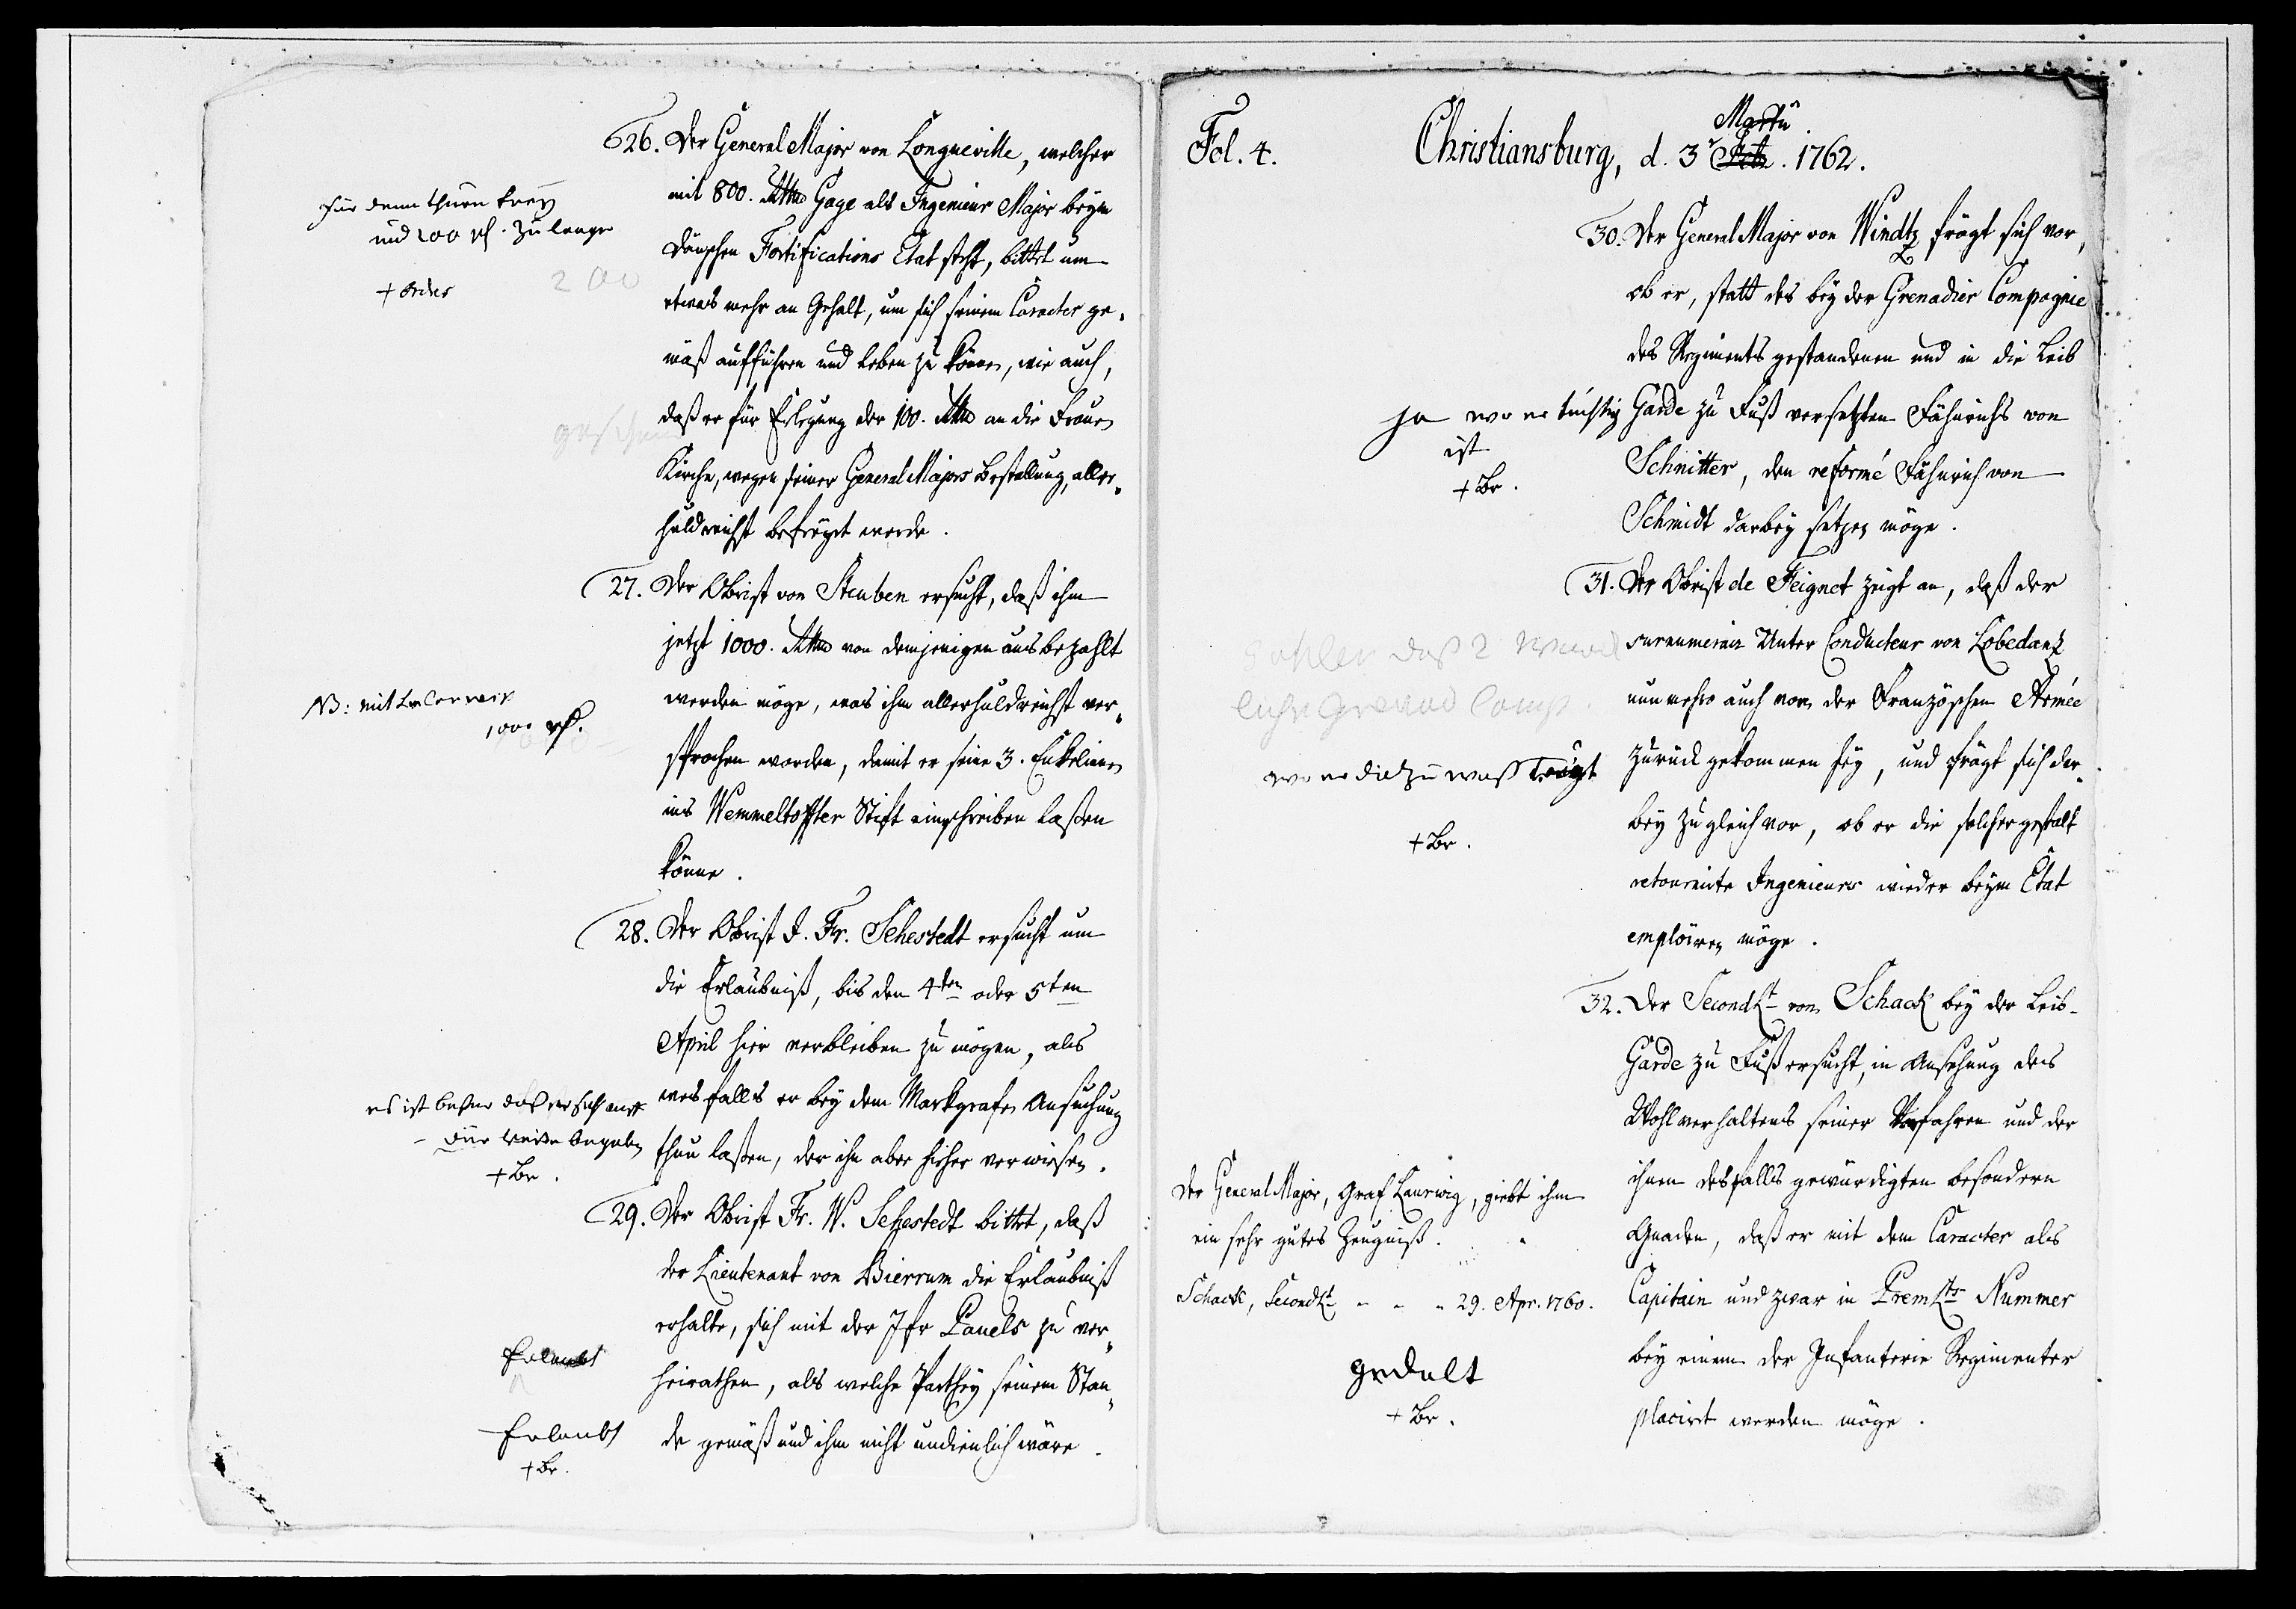 26. Der General Major von Longueville, welcher
mit 800. Rthlr Gage als Ingenieur Major beym
Dänschen Fortifications Etat steht, bittet um
etwas mehr an Gehalt, um sich seinem Caracter ge-
mäß aufführen und leben zu können, wie auch,
daß er für Erlegung der 100. Rthlr an die Frauen
Kirche, wegen seiner General Majors Bestallung, aller-
huldreichst befreyet werde.
und 200 rd. Zulage
+ Ordres
200
27. Der Obrist von Steuben ersucht, daß ihm
jetzt 1000. Rthlr von demjenigen ausbezahlt
werden möge, was ihm allerhuldreichst ver-
sprochen worden, damit er seine 3. Enkelinnen
ins Wemmeltoffter Stift einschreiben laßen
könne.
NB: mit
1000 rd.
28. Der Obrist J. Fr. Sehestedt ersucht um
die Erlaubniß, bis den 4ten oder 5ten
April hier verbleiben zu mögen, als
wesfalls er bey dem Markgrafen Ansuchung
thun laßen, der ihn aber hieher verwiesen.
es ist beßer daß er sich
+ Br.
29. Der Obrist Fr. W. Sehestedt bittet, daß
der Lieutenant von Bierrum die Erlaubniß
erhalte, sich mit der Jfr Pauels zu ver-
heirathen, als welche Parthey seinem Stan-
de gemäß und ihm nicht undienlich wäre.
Erlaubt
Erlaubt
+ Br.
Fol. 4.
Christiansburg, d. 3r Feb. Martii 1762.
30. Der General Major von Windtz frägt sich vor,
ob er, statt des bey der Grenadier Compagnie
des Regiments gestandenen und in die Leib
Garde zu Fuß versetzten Fähnrichs von
Schnitter, den reformé Fähnrich von
Schmidt darbey setzen möge.
ja wo er tüchtig
ist
+ Br.
31. Der Obrist de Peignet zeigt an, daß der
surnumerair Unter Conducteur von Lobedantz
nunmehro auch von der Französchen Armée
zurück gekommen sey, und frägt sich dar-
bey zugleich vor, ob er die solchergestalt
retournirte Ingenieurs wieder beym Etat
emploiren möge.
wo er dazu was taugt
+ Br.
32. Der Second Lt von Schack bey der Leib-
Garde zu Fuß ersucht, in Ansehung des
Wohlverhaltens seiner Vorfahren und der
ihnen desfalls gewürdigten besondern
Gnaden, daß er mit dem Caracter als
Capitain und zwar in Prem Lts Nummer
bey einem der Infanterie Regimenter
placirt werden möge.
Der General Major, Graf Laurwig, giebt ihm
ein sehr gutes Zeugniß.
Schack, Second Lt - - - 29. Apr. 1760.
gedult
+ Br.